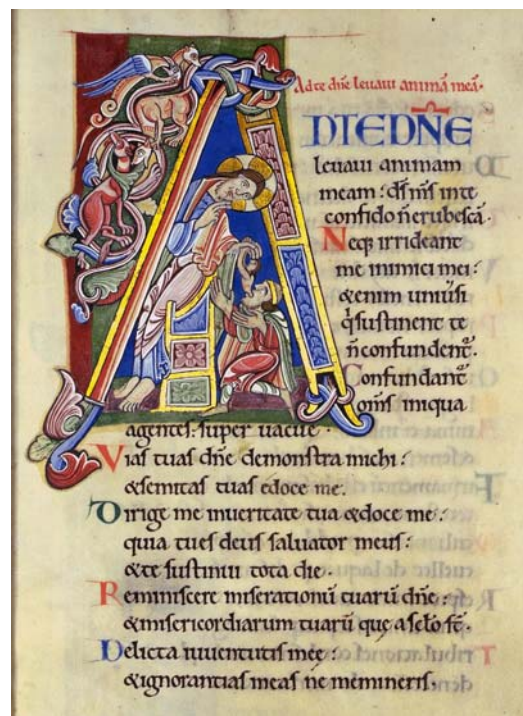 Ad te dñe levavi animā meā.
AD TE DÑE
levavi animam
meam: ds̄ ms̄ in te
confido ñ erubescā.
Neq; irrideant
me inimici mei:
&enim univ̄si
q̄ sustinent te
ñ confundent̄.
Confundant̄
om̄s iniqua
agentes: super vacue.
Vias tuas dñe demonstra michi:
&semitas tuas edoce me.
Dirige me in veritate tua &doce me:
quia tu es deus salvator meus:
&te sustinui tota die.
Reminiscere miserationū tuarū dñe:
&misericordiarum tuarū que a sclo st̄.
Delicta iuventutis meę:
&ignorantias meas ne memineris.